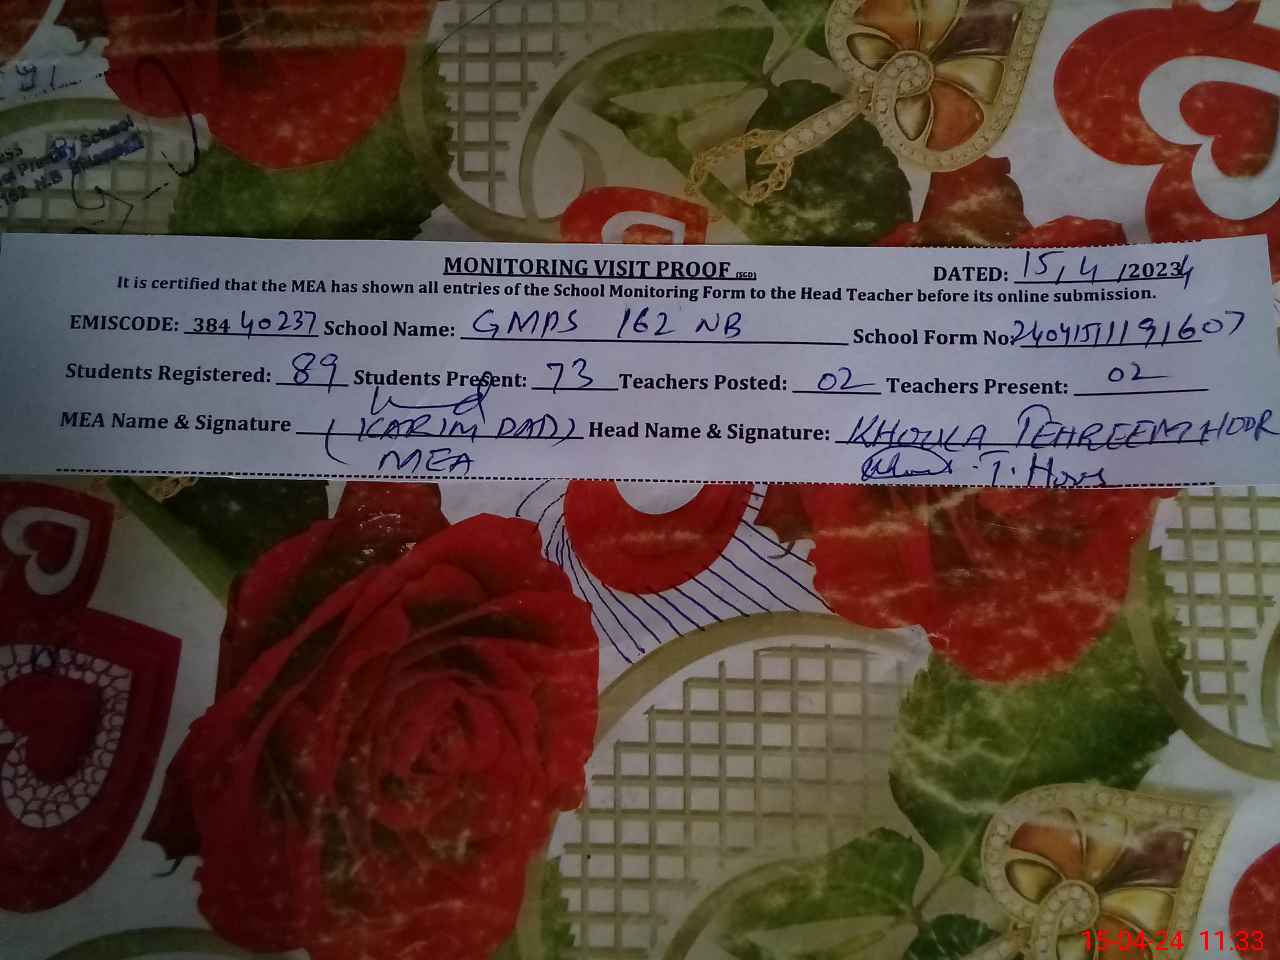 School
MONITORING VISIT PROOF (SGD)
DATED: 15/4/20234
It is certified that the MEA has shown all entries of the School Monitoring Form to the Head Teacher before its online submission.
EMISCODE: 38440237 School Name: GMPS 162 NB School Form No: 2404151191607
Students Registered: 89 Students Present: 73 Teachers Posted: 02 Teachers Present: 02
MEA Name & Signature (KARIM DAD) Head Name & Signature: KHOULA TEHREEM HOOR
MEA T. Hoor
15-04-24 11:33